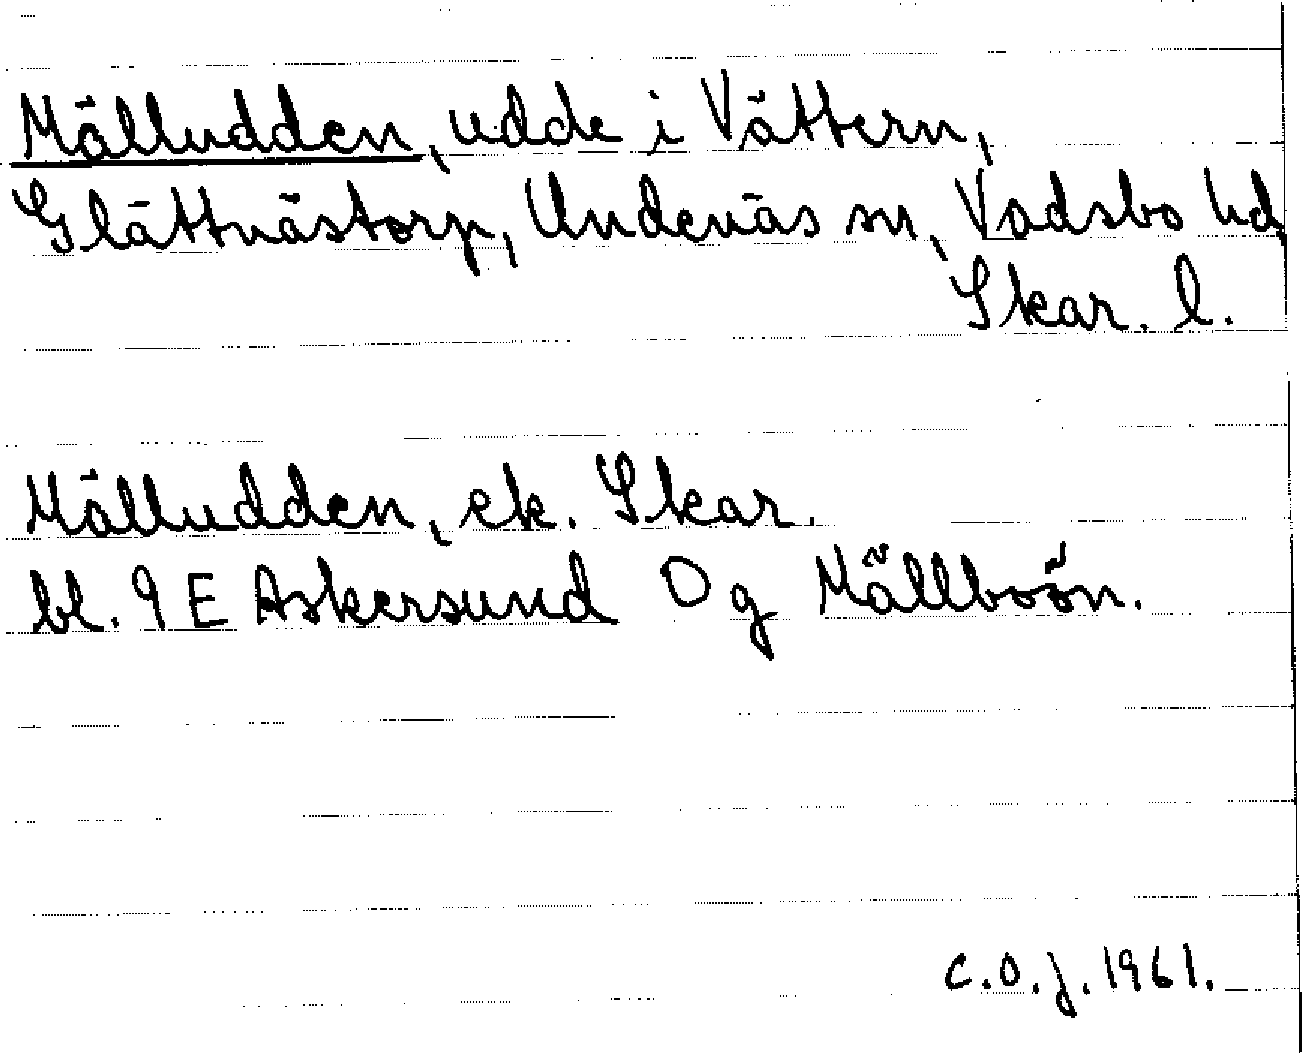 Mälludden, udde i Vättern,
Glättnästorp, Undenäs sn, Vadsbo hd,
Skar. l.
Mälludden, ek. Skar.
bl. 9 E Askersund 0 g Mällboön.
C.O.J. 1961.